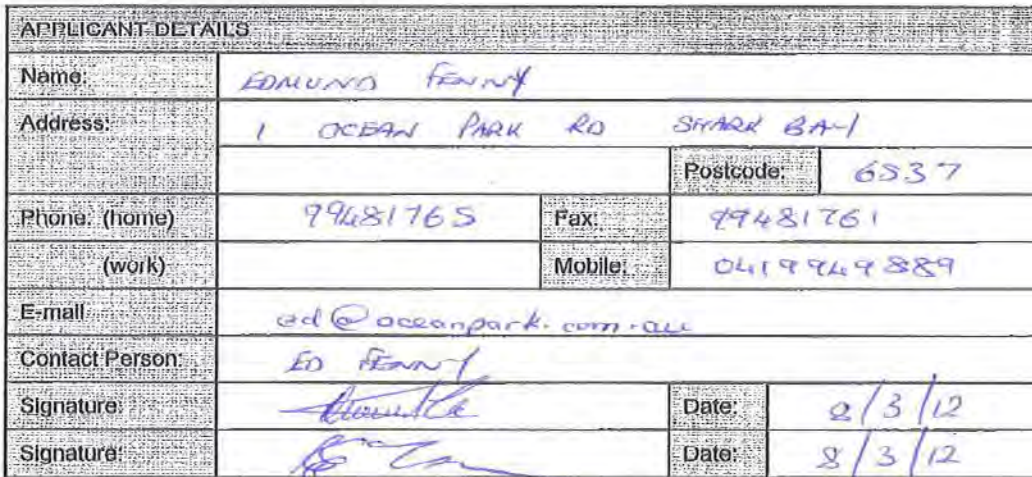 APPLICANT DETAILS
Name: EDMUND FENNY
Address: 1 OCEAN PARK RD SHARK BAY
Postcode: 6537
Phone: (home) 99481765 Fax: 99481761
(work) Mobile: 0419949889
E-mail ed@oceanpark.com.au
Contact Person: ED FENNY
Signature: Date: 8/3/12
Signature: Date: 8/3/12